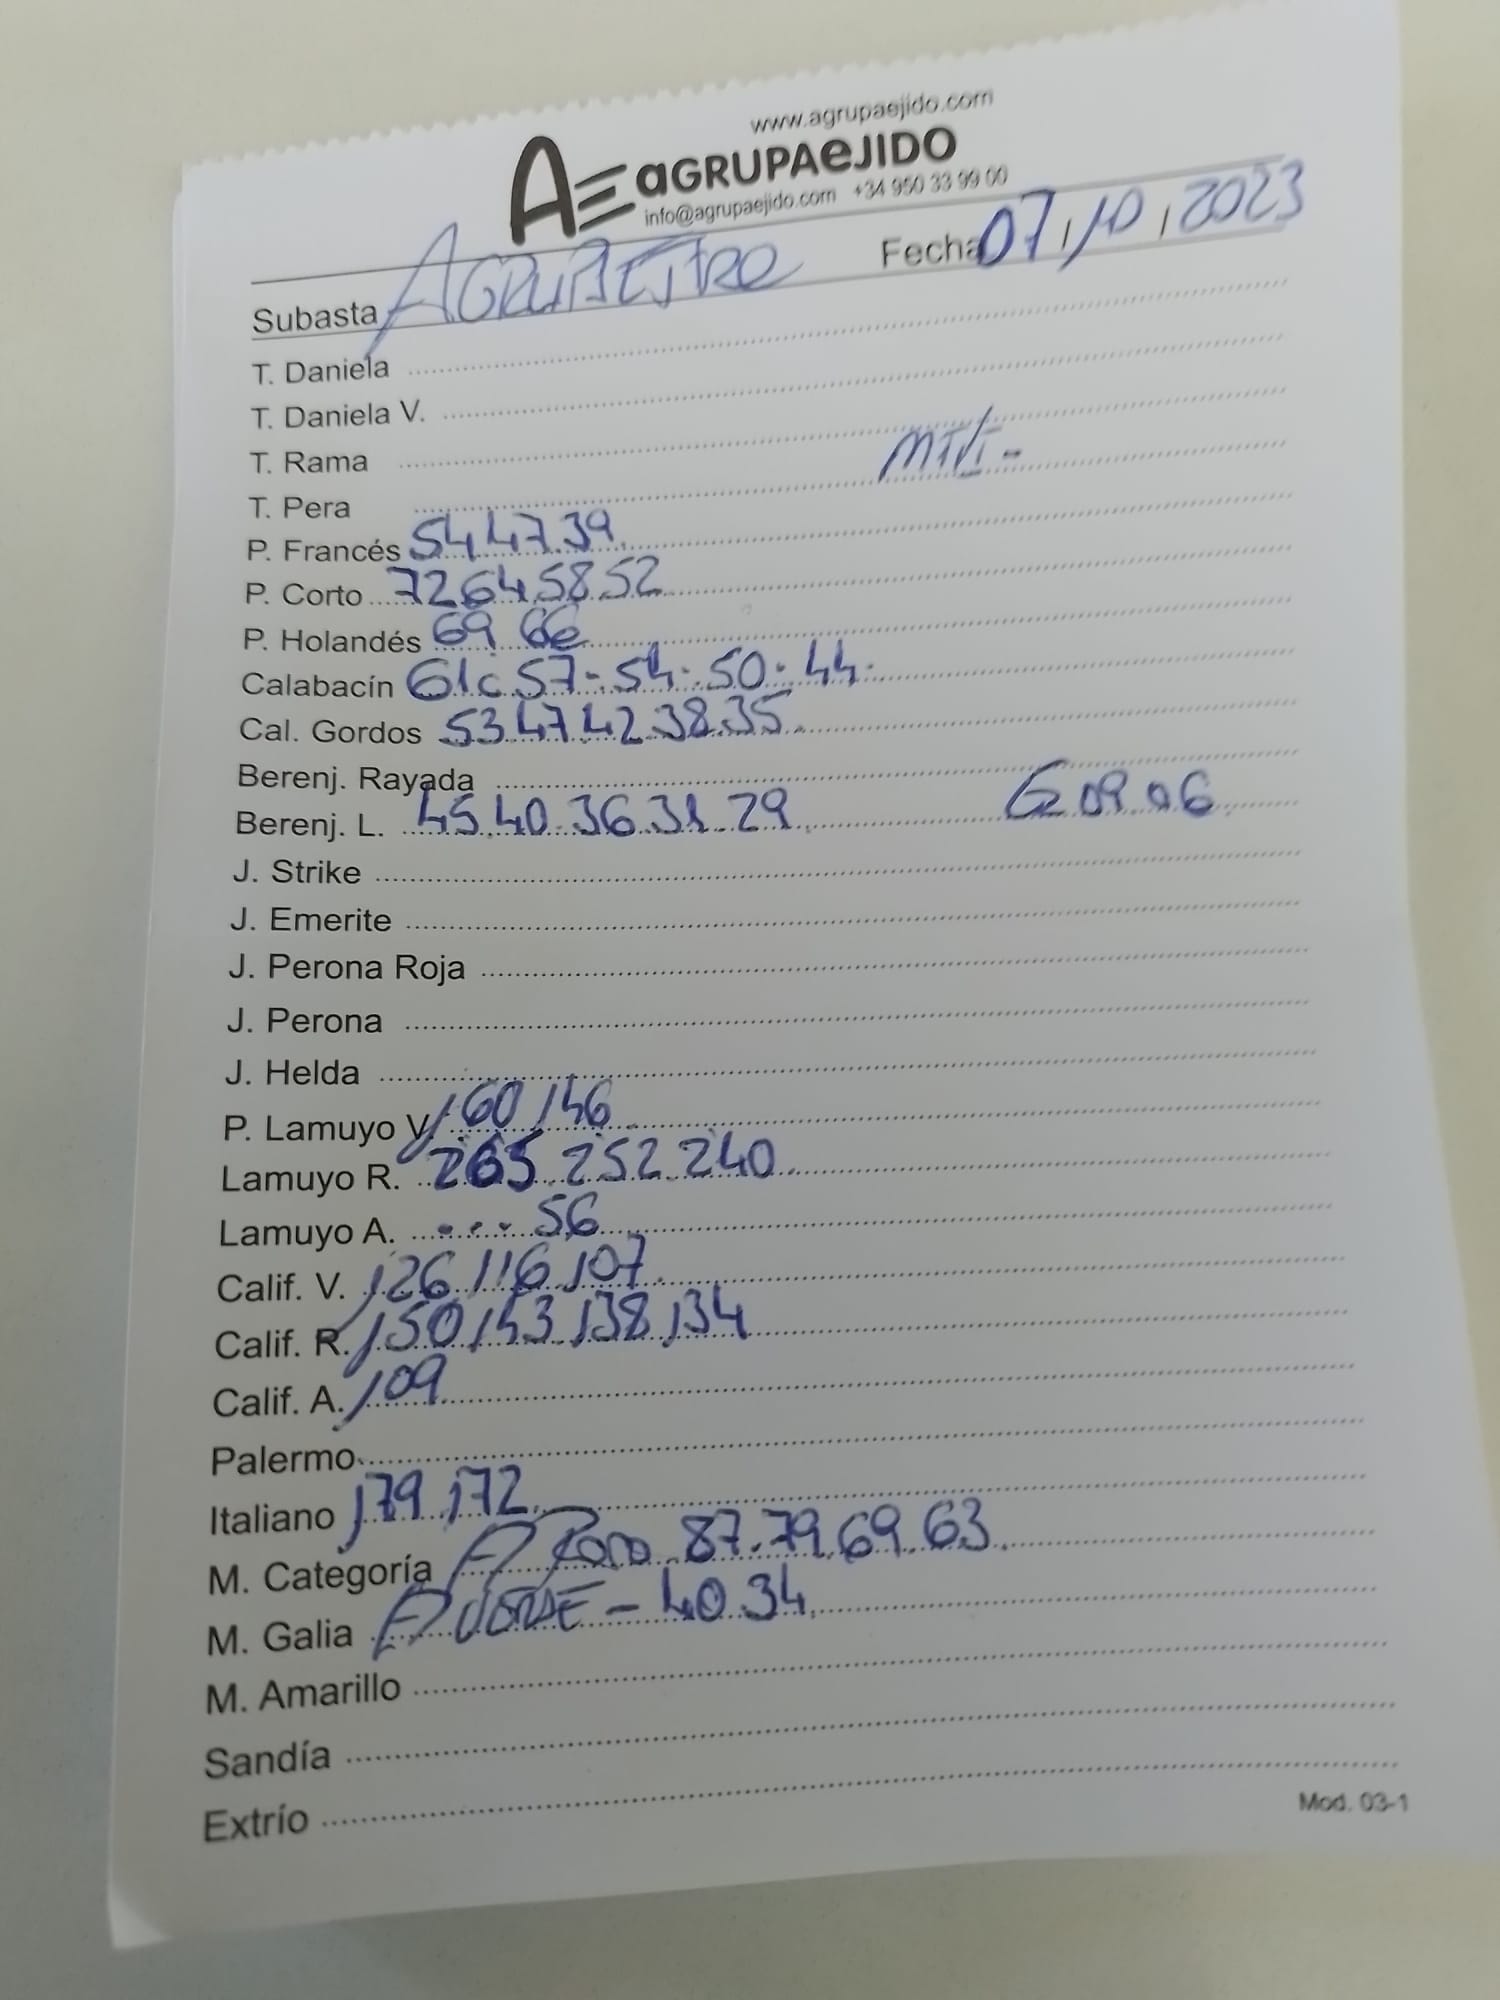 www.agrupaejido.com
AE aGRUPAeJIDO
info@agrupaejido.com +34 950 33 99 00
Subasta Fecha 07/10/2023
T. Daniela
T. Daniela V.
T. Rama
T. Pera
P. Francés 54 47 39
P. Corto 72 64 58 52
P. Holandés 69 66
Calabacín 61c 57-54-50-44
Cal. Gordos 53 47 42 38 35
Berenj. Rayada
Berenj. L. 45 40 36 31 29 G 09 06
J. Strike
J. Emerite
J. Perona Roja
J. Perona
J. Helda
P. Lamuyo V. 160 146
Lamuyo R. 265 252 240
Lamuyo A. 56
Calif. V. 126 116 107
Calif. R. 150 143 138 134
Calif. A. 109
Palermo
Italiano 179 172
M. Categoría 87 79 69 63
M. Galia - 40 34
M. Amarillo
Sandía
Extrío
Mod. 03-1